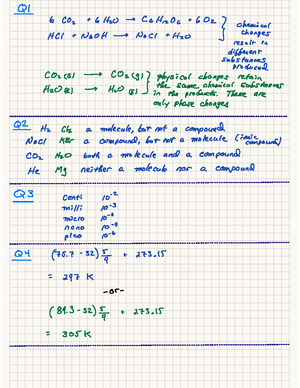 Q1
6 CO2 + 6 H2O → C6H12O6 + 6 O2
HCl + NaOH → NaCl + H2O
chemical
changes
result in
different
substances
produced
CO2 (s) → CO2 (g)
H2O (l) → H2O (g)
physical changes retain
the same chemical substances
in the products. These are
only phase changes
Q2
H2 Cl2 a molecule, but not a compound
NaCl KBr a compound, but not a molecule (ionic compound)
CO2 H2O both a molecule and a compound
He Mg neither a molecule nor a compound
Q3
centi 10-2
milli 10-3
micro
nano 10-9
pico
Q4
(75.7 - 32) 5/9 + 273.15
= 297 K
-or-
(89.3 - 32) 5/9 + 273.15
= 305 K